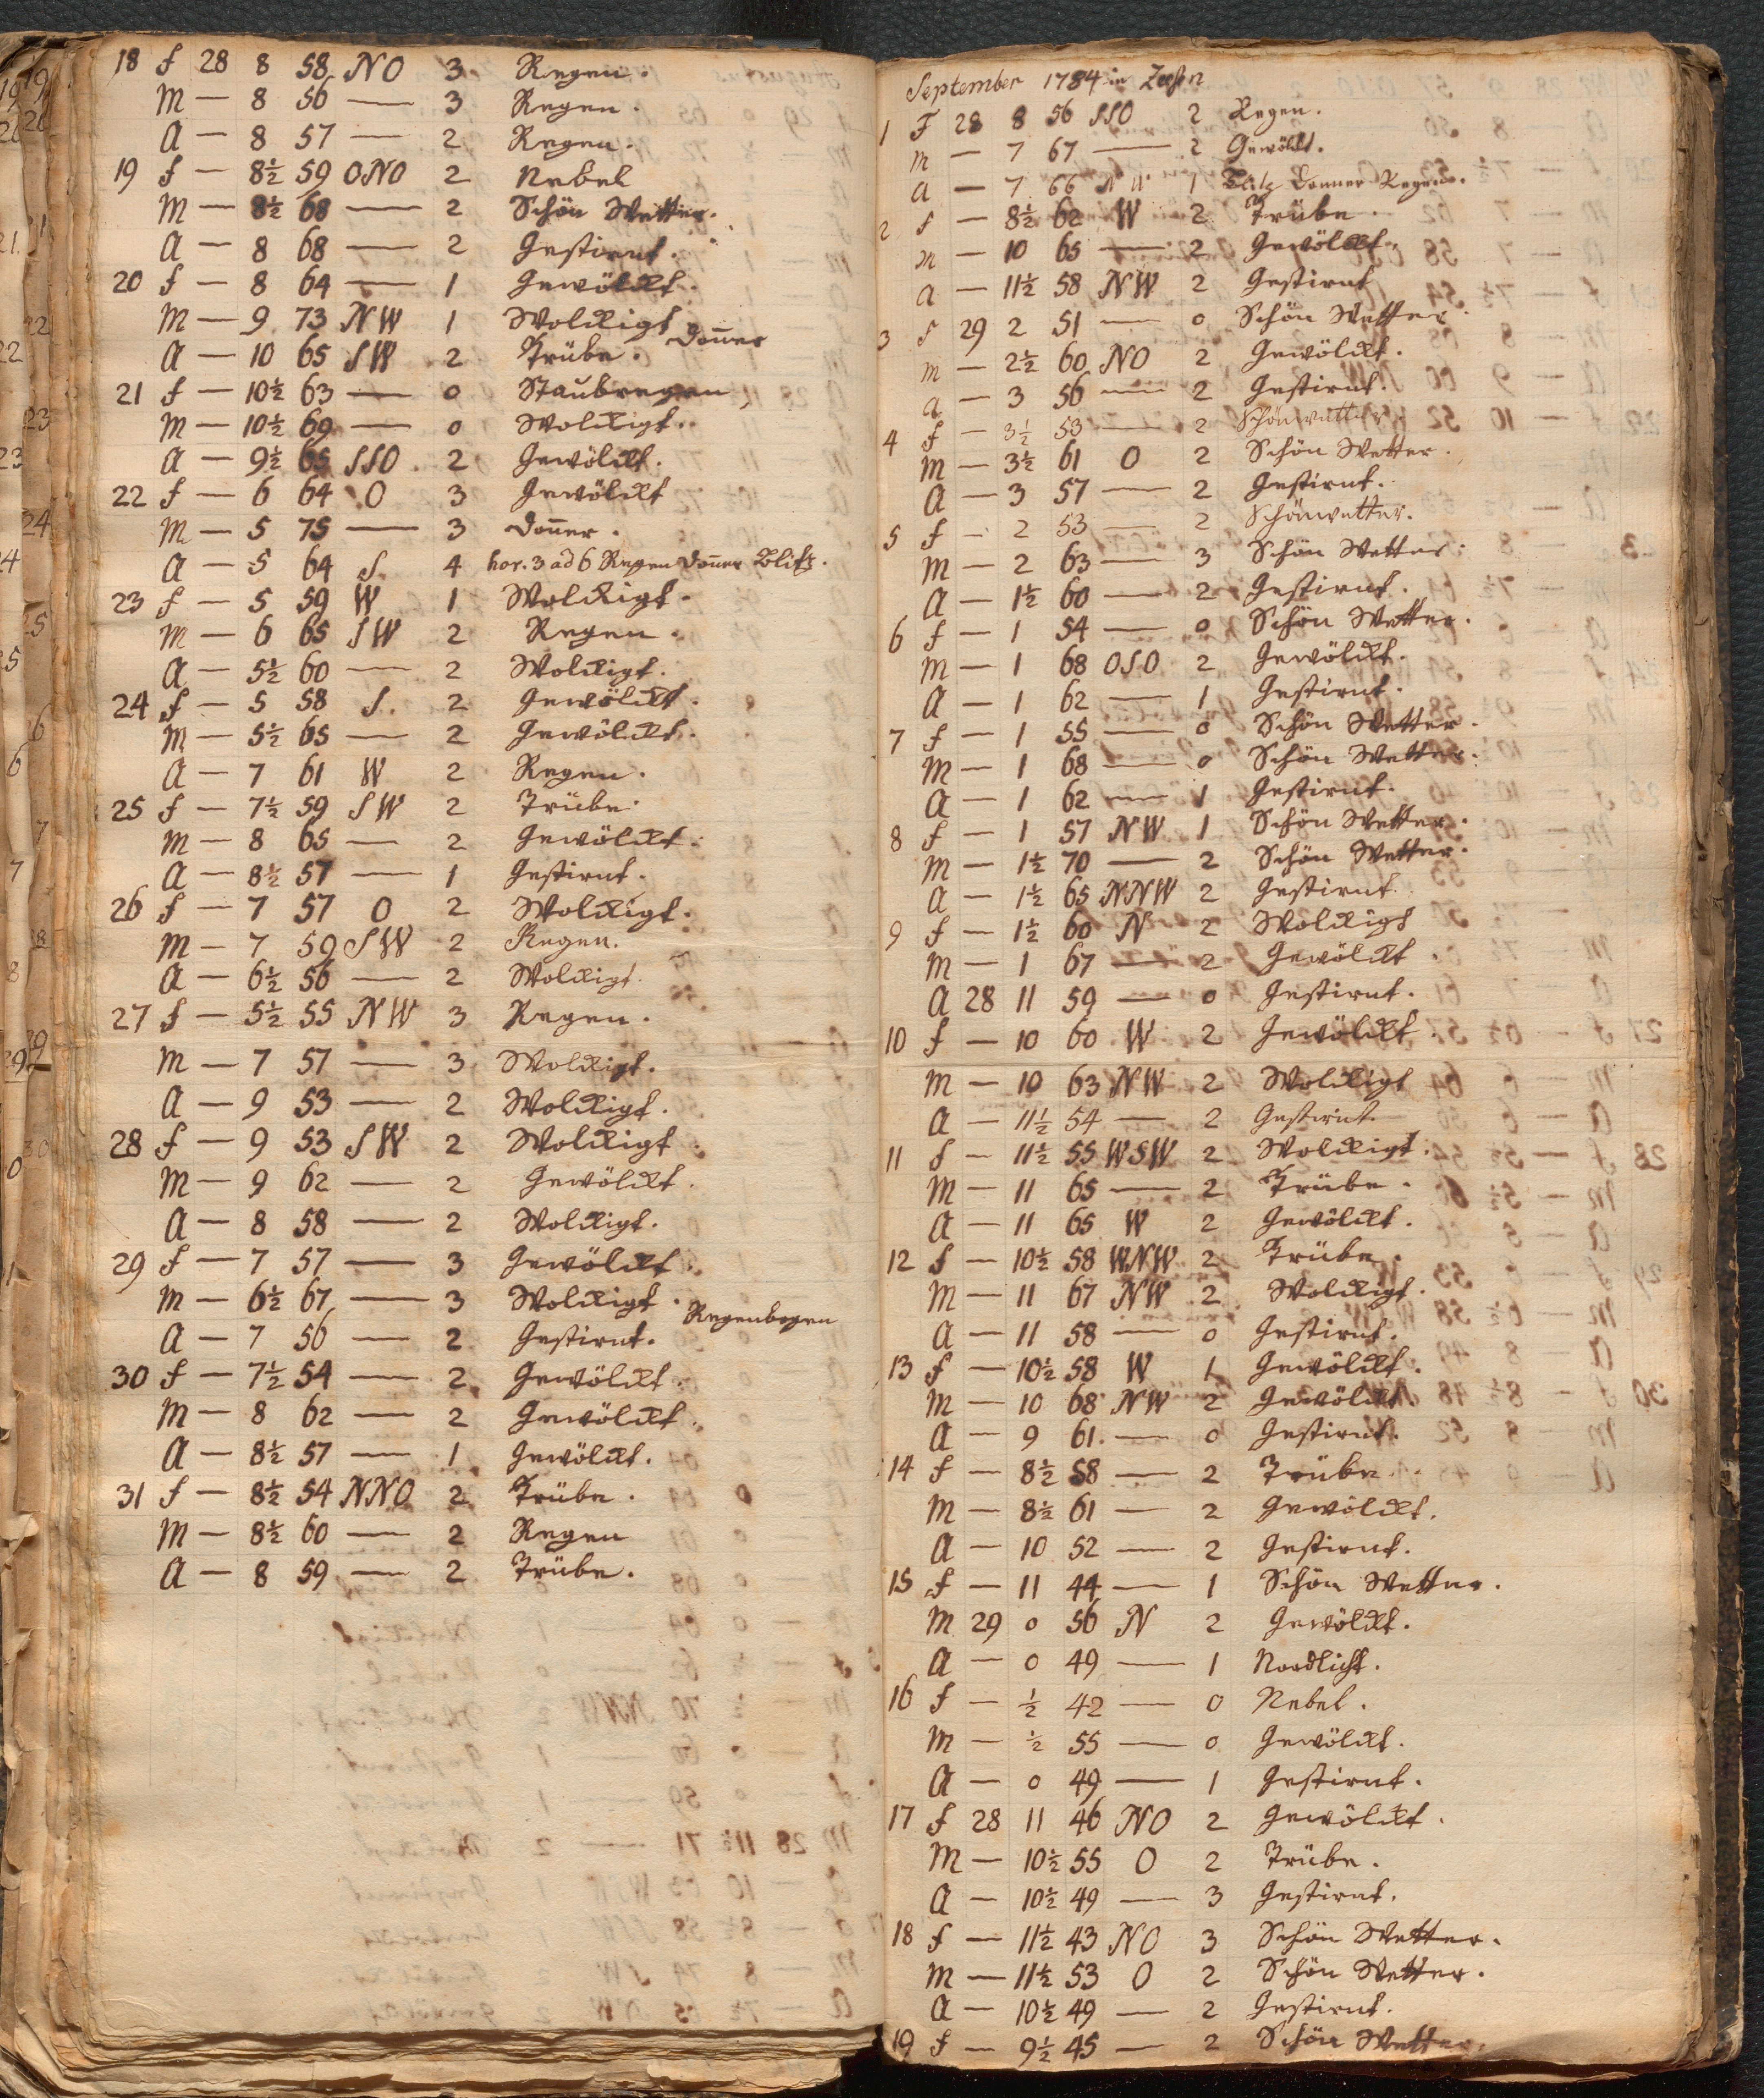 18 f 28 8 58 NO 3 Regen.
M — 8 56 — 3 Regen.
A — 8 57 — 2 Regen.
19 f — 8½ 59 ONO 2 Nebel
M — 8½ 68 — 2 Schön Wetter.
A — 8 68 — 2 Gestirnt.
20 f — 8 64 — 1 Gewölckt.
M — 9 73 NW 1 Wolckigt
Don̅er
A — 10 65 SW 2 Trübe.
21 f — 10½ 63 — 0 Staubregen
M — 10½ 69 — 0 Wolckigt.
A — 9½ 65 SSO 2 Gewölckt.
22 f — 6 64 O 3 Gewölckt
M — 5 75 — 3 Don̅er.
A — 5 64 S. 4 hor. 3 ad 6 Regen Don̅er Blitz.
23 f — 5 59 W 1 Wolckigt.
M — 6 65 SW 2 Regen.
A — 5½ 60 — 2 Wolckigt.
24 f — 5 58 S. 2 Gewölckt.
M — 5½ 65 — 2 Gewölckt.
A — 7 61 W 2 Regen.
25 f — 7½ 59 SW 2 Trübe.
M — 8 65 — 2 Gewölckt.
A — 8½ 57 — 1 Gestirnt.
26 f — 7 57 O 2 Wolckigt.
M — 7 59 SW 2 Regen.
A — 6½ 56 — 2 Wolckigt.
27 f — 5½ 55 NW 3 Regen.
M — 7 57 — 3 Wolckigt.
A — 9 53 — 2 Wolckigt.
28 f — 9 53 SW 2 Wolckigt
M — 9 62 — 2 Gewölckt.
A — 8 58 — 2 Wolckigt.
29 f — 7 57 — 3 Gewölckt.
M — 6½ 67 — 3 Wolckigt.
Regenbogen
A — 7 56 — 2 Gestirnt.
30 f — 7½ 54 — 2 Gewölckt.
M — 8 62 — 2 Gewölckt.
A — 8½ 57 — 1 Gewölckt.
31 f — 8½ 54 NNO 2 Trübe.
M — 8½ 60 — 2 Regen
A — 8 59 — 2 Trübe.
September 1784 in
1 F 28 8 56 SSO 2 Regen.
m — 7 67 — 2 Gewölckt.
a — 7 66 NW 1 Blitz Donner Regen.
2 f — 8½ 62 W 2 Trübe
m — 10 65 — 2 Gewölckt.
a — 11½ 58 NW 2 Gestirnt
3 f 29 2 51 — 0 Schön Wetter
m — 2½ 60 NO 2 Gewölckt.
a — 3 56 — 2 Gestirnt.
4 f — 3½ 53 — 2 Schönwetter
M — 3½ 61 O 2 Schön Wetter.
A — 3 57 — 2 Gestirnt.
5 f — 2 53 — 2 Schönwetter.
M — 2 63 — 3 Schön Wetter.
A — 1½ 60 — 2 Gestirnt.
6 f — 1 54 — 0 Schön Wetter.
M — 1 68 OSO 2 Gewölckt.
A — 1 62 — 1 Gestirnt.
7 f — 1 55 — 0 Schön Wetter.
M — 1 68 — 0 Schön Wetter.
A — 1 62 — 1 Gestirnt.
8 f — 1 57 NW 1 Schön Wetter.
M — 1½ 70 — 2 Schön Wetter.
A — 1½ 65 NNW 2 Gestirnt
9 f — 1½ 60 N 2 Wolckigt
M — 1 67 — 2 Gewölckt
A 28 11 59 — 0 Gestirnt.
10 f — 10 60 W 2 Gewölckt
M — 10 63 NW 2 Wolckigt
A — 11½ 54 — 2 Gestirnt.
11 f — 11½ 55 WSW 2 Wolckigt.
M — 11 65 — 2 Trübe.
A — 11 65 W 2 Gewölckt.
12 f — 10½ 58 WNW 2 Trübe.
M — 11 67 NW 2 Wolckigt.
A — 11 58 — 0 Gestirnt.
13 f — 10½ 58 W 1 Gewölckt.
M — 10 68 NW 2 Gewölckt
A — 9 61 — 0 Gestirnt.
14 f — 8½ 58 — 2 Trübe
M — 8½ 61 — 2 Gewölckt.
A — 10 52 — 2 Gestirnt.
15 f — 11 44 — 1 Schön Wetter.
M 29 0 56 N 2 Gewölckt.
A — 0 49 — 1 Nordlicht.
16 f — ½ 42 — 0 Nebel.
M — ½ 55 — 0 Gewölckt.
A — 0 49 — 1 Gestirnt.
17 f 28 11 46 NO 2 Gewölckt.
M — 10½ 55 O 2 Trübe.
A — 10½ 49 — 3 Gestirnt.
18 f — 11½ 43 NO 3 Schön Wetter.
M — 11½ 53 O 2 Schön Wetter.
A — 10½ 49 — 2 Gestirnt.
19 f — 9½ 45 — 2 Schön Wetter.